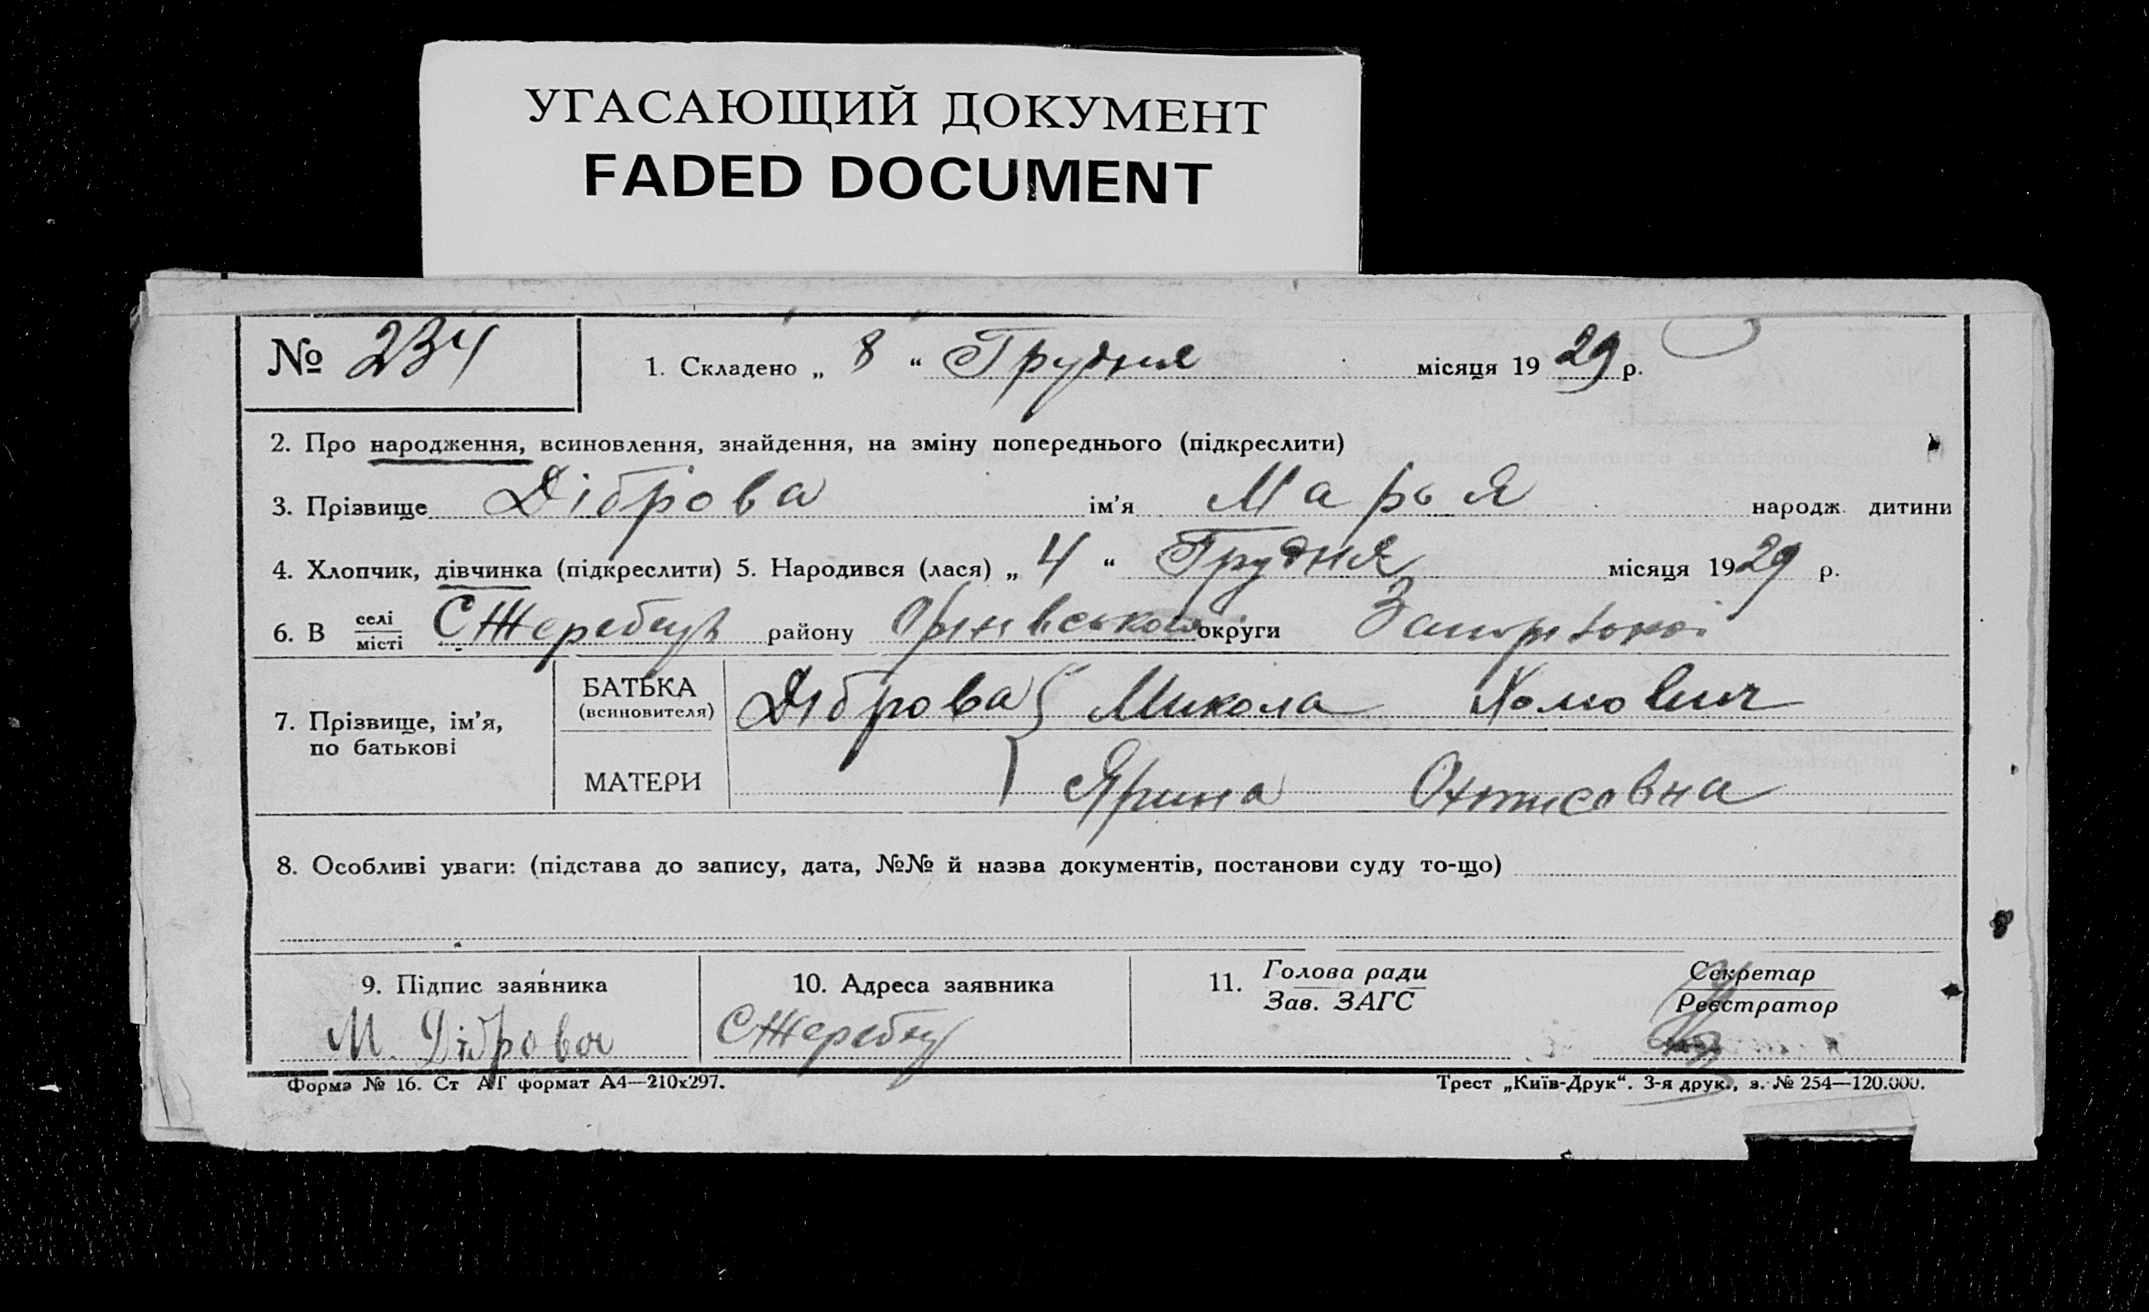 УГАСАЮЩИЙ ДОКУМЕНТ
FADED DOCUMENT
№ 234 1. Складено „ 8 “ Грудня місяця 1929 р.
2. Про народження, всиновлення, знайдення, на зміну попереднього (підкреслити)
3. Прізвище Діброва ім'я Марья народж. дитини
4. Хлопчик, дівчинка (підкреслити) 5. Народився (лася) „ 4 “ Грудня місяця 1929 р.
6. В селі/місті С Жеребець району округи
7. Прізвище, ім'я, по батькові
БАТЬКА (всиновителя) Діброва Микола
МАТЕРИ Ярина
8. Особливі уваги: (підстава до запису, дата, №№ й назва документів, постанови суду то-що)
9. Підпис заявника 10. Адреса заявника 11. Голова ради/Зав. ЗАГС Секретар/Реєстратор
М. Діброва С Жеребец
Форма № 16. Ст АТ формат А4—210х297. Трест „Київ-Друк“. 3-я друк., з. № 254—120.000.